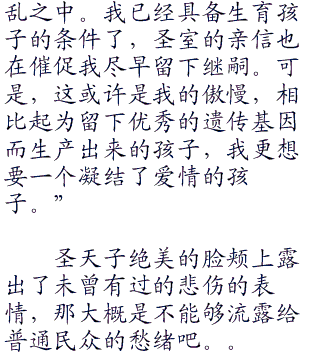 乱之中。我已经具备生育孩
子的条件了，圣室的亲信也
在催促我尽早留下继嗣。可
是，这或许是我的傲慢，相
比起为留下优秀的遗传基因
而生产出来的孩子，我更想
要一个凝结了爱情的孩
子。”
圣天子绝美的脸颊上露
出了未曾有过的悲伤的表
情，那大概是不能够流露给
普通民众的愁绪吧。。